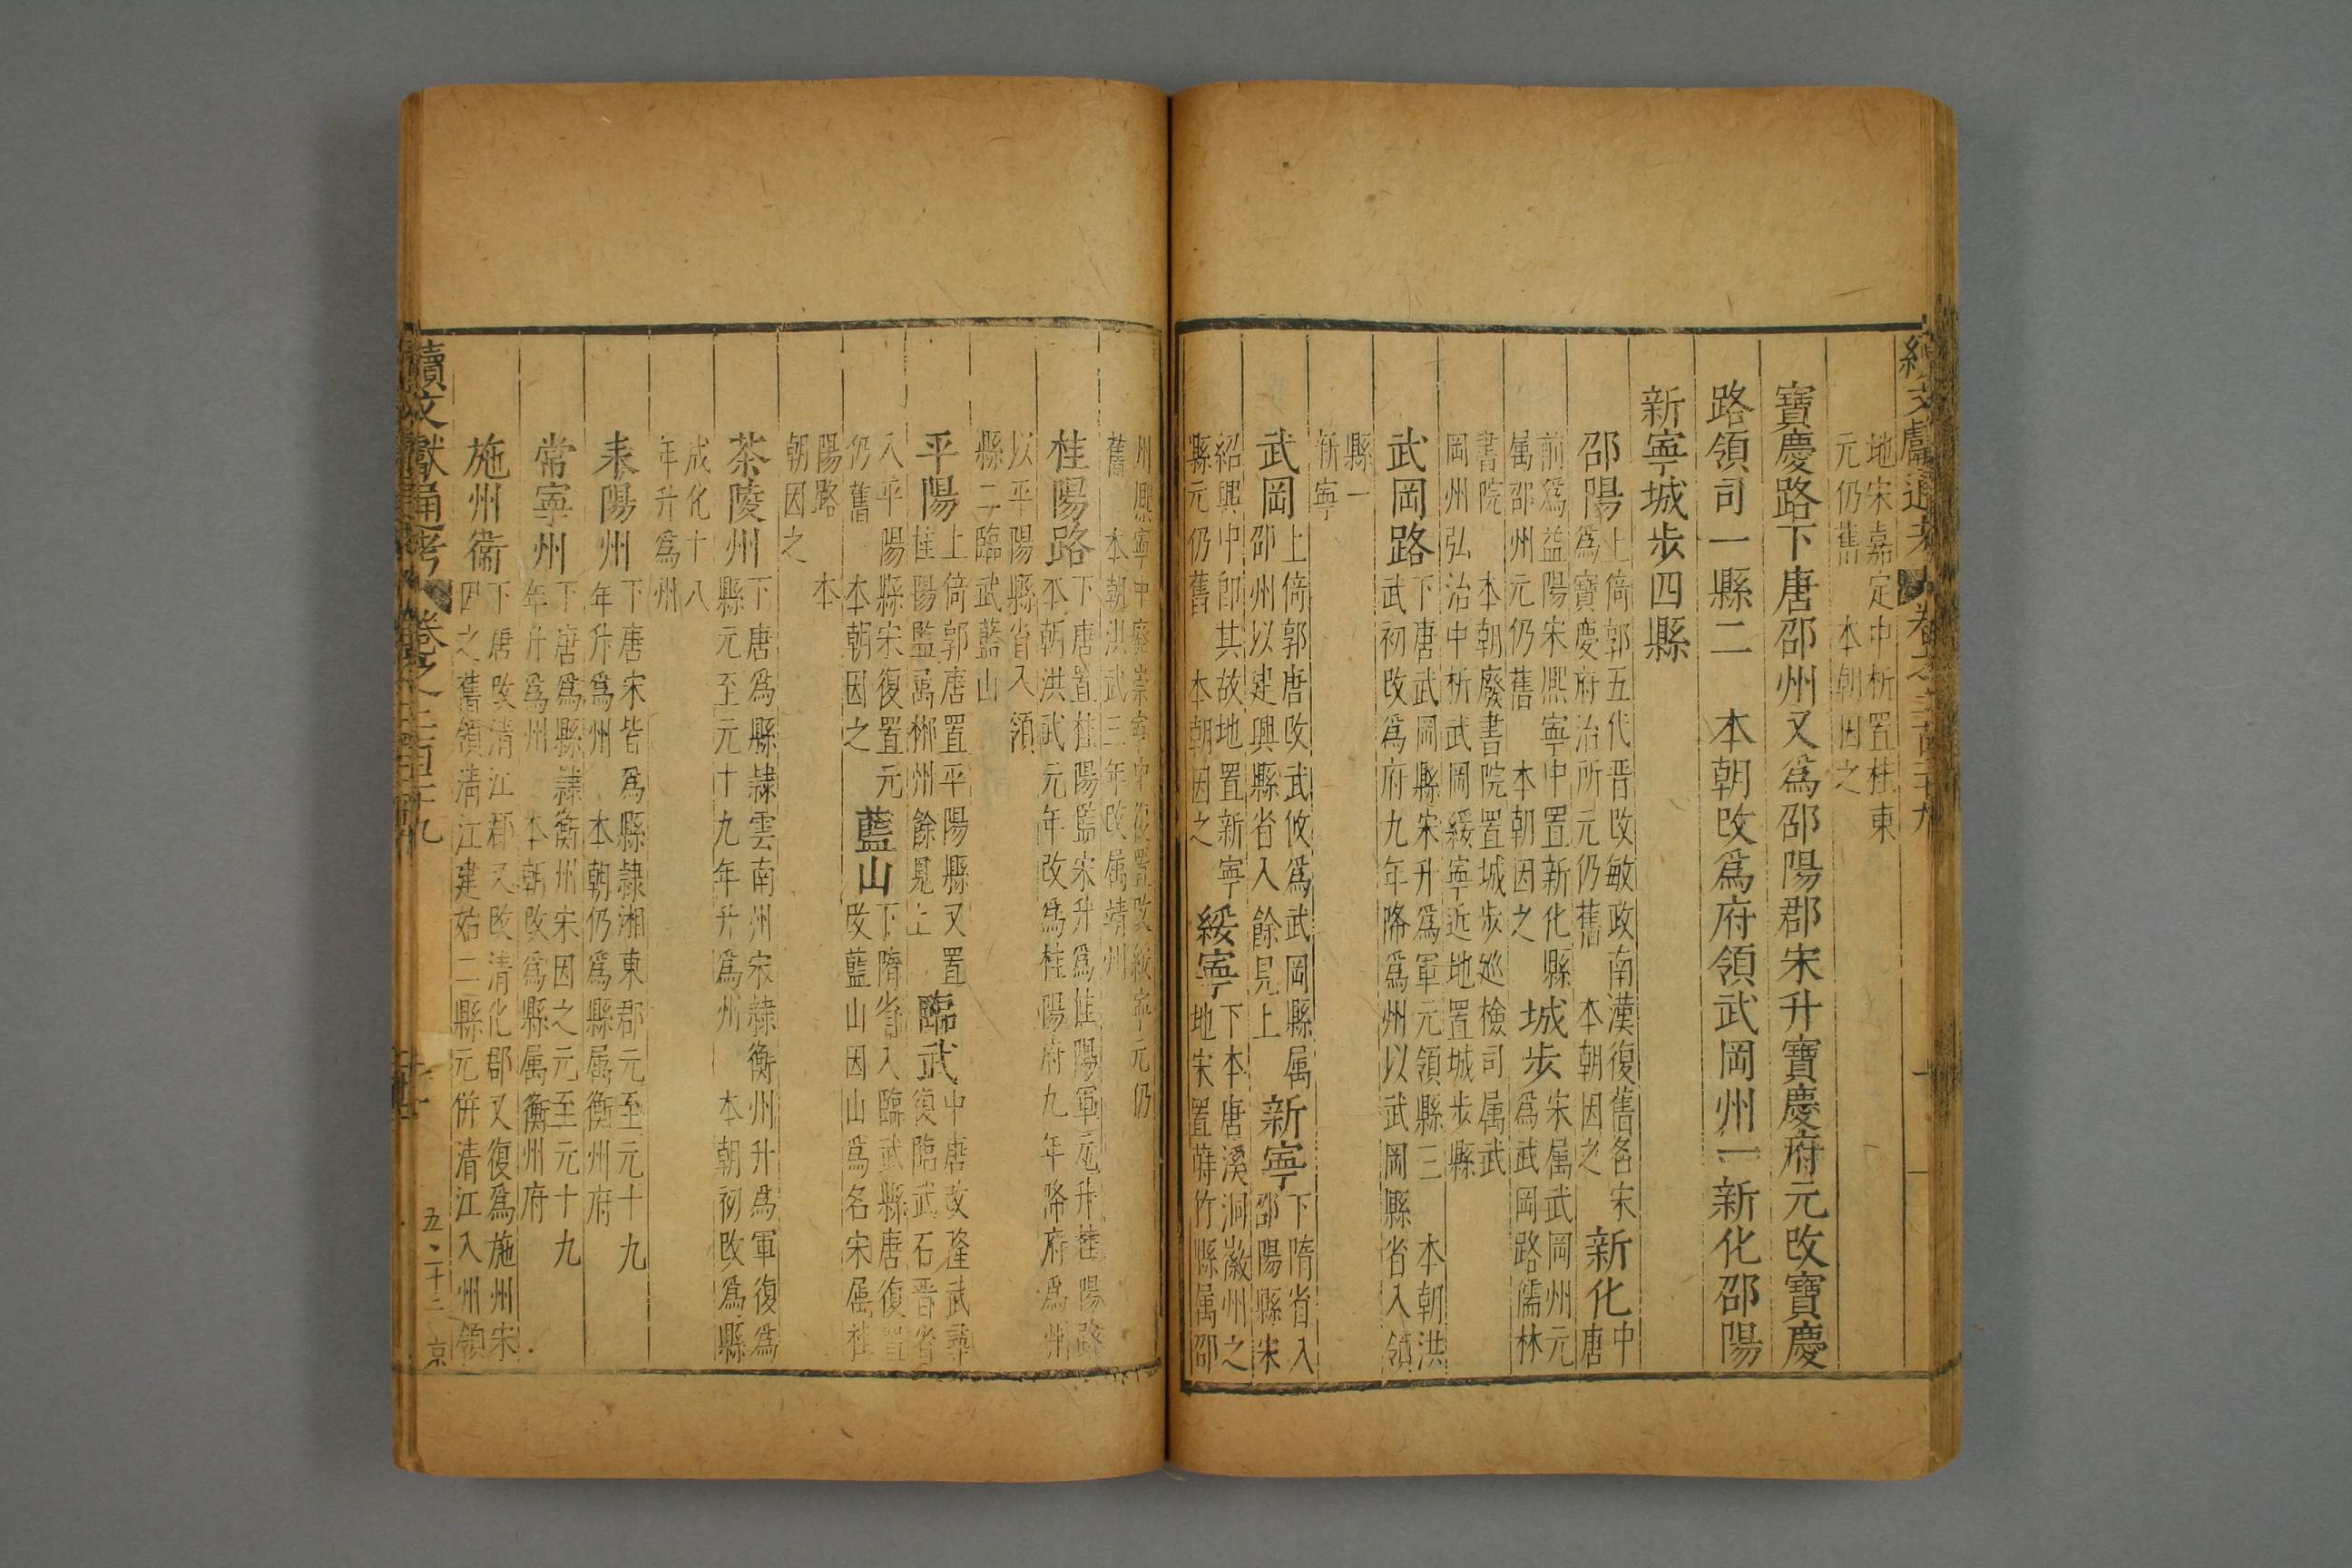 續文獻通考 卷之二百二十九
地宋嘉定中析置桂東
元仍舊 本朝因之
寶慶路下唐邵州又爲邵陽郡宋升寶慶府元改寶慶
路領司一縣二 本朝改爲府領武岡州一新化邵陽
新寧城步四縣
邵陽上倚郭五代晋改敏政南漢復舊名宋
爲寶慶府治所元仍舊 本朝因之新化中
唐
前爲益陽宋熈寧中置新化縣
属邵州元仍舊 本朝因之城步宋属武岡州元
爲武岡路儒林
書院 本朝廢書院置城步廵檢司属武
岡州弘治中析武岡綏寧近地置城步縣
武岡路下唐武岡縣宋升爲軍元領縣三 本朝洪
武初改爲府九年降爲州以武岡縣省入領
縣一
新寧
武岡上倚郭唐改武攸爲武岡縣属
邵州以建興縣省入餘見上新寧下隋省入
邵陽縣宋
紹興中即其故地置新寧
縣元仍舊 本朝因之綏寧下本唐溪洞徽州之
地宋置蒔竹縣属邵
州熈寧中廢崇寧中復置改綏寧元仍
舊 本朝洪武三年改属靖州
桂陽路下唐置桂陽監宋升爲桂陽軍元升桂陽路
本朝洪武元年改爲桂陽府九年降府爲州
以平陽縣省入領
縣二臨武藍山
平陽上倚郭唐置平陽縣又置
桂陽監属郴州餘見上臨武中唐改隆武尋
復臨武石晋省
入平陽縣宋復置元
仍舊 本朝因之藍山下隋省入臨武縣唐復置
改藍山因山爲名宋属桂
陽路 本
朝因之
茶陵州下唐爲縣隸雲南州宋隸衡州升爲軍復爲
縣元至元十九年升爲州 本朝初改爲縣
成化十八
年升爲州
耒陽州下唐宋皆爲縣隸湘東郡元至元十九
年升爲州 本朝仍爲縣属衡州府
常寧州下唐爲縣隸衡州宋因之元至元十九
年升爲州 本朝改爲縣属衡州府
施州衞下唐改清江郡又改清化郡又復爲施州宋
因之舊領清江建始二縣元併清江入州領
續文獻通考 卷之二百二十九
五二十二 京